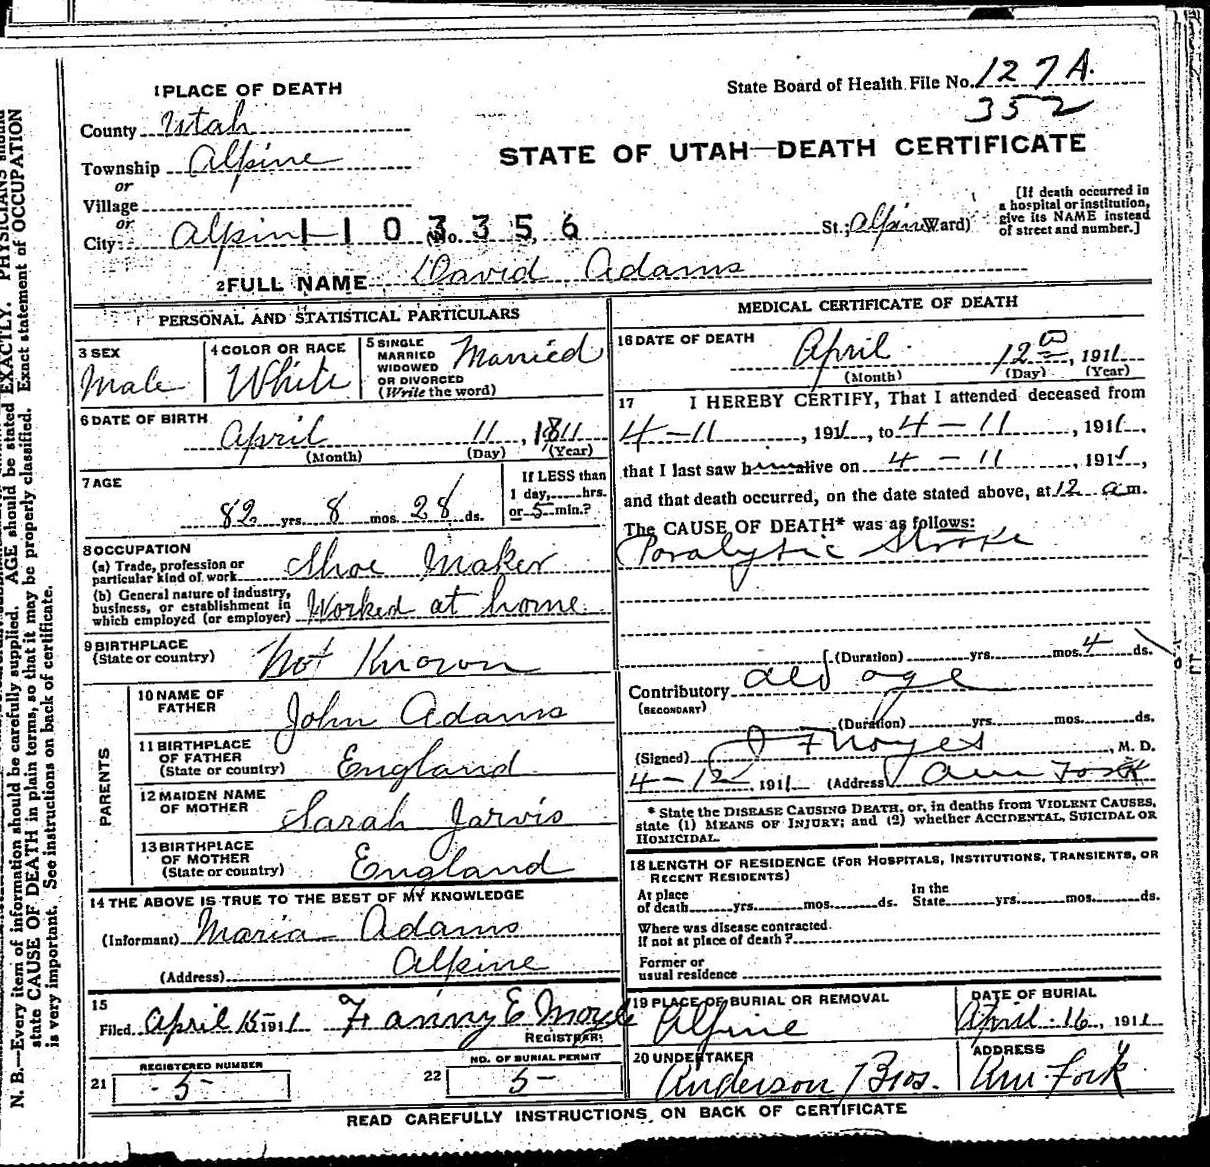 1 PLACE OF DEATH
State Board of Health File No. 127 A.
352
County Utah
Township Alpine
or
Village
or
City Alpine (No. St.; Alpine Ward)
1103356
STATE OF UTAH—DEATH CERTIFICATE
[If death occurred in
a hospital or institution,
give its NAME instead
of street and number.]
2 FULL NAME David Adams
PERSONAL AND STATISTICAL PARTICULARS
3 SEX
Male
4 COLOR OR RACE
White
5 SINGLE
MARRIED
WIDOWED
OR DIVORCED
(Write the word)
Married
6 DATE OF BIRTH
April 11, 1811
(Month) (Day) (Year)
7 AGE
82 yrs. 8 mos. 28 ds.
If LESS than
1 day, hrs.
or 5 min.?
8 OCCUPATION
(a) Trade, profession or
particular kind of work Shoe Maker
(b) General nature of industry,
business, or establishment in
which employed (or employer) Worked at home
9 BIRTHPLACE
(State or country) Not Known
PARENTS
10 NAME OF
FATHER John Adams
11 BIRTHPLACE
OF FATHER
(State or country) England
12 MAIDEN NAME
OF MOTHER Sarah Jarvis
13 BIRTHPLACE
OF MOTHER
(State or country) England
14 THE ABOVE IS TRUE TO THE BEST OF MY KNOWLEDGE
(Informant) Maria Adams
(Address) Alpine
15
Filed April 15 1911 Fanny E Moyle
REGISTRAR.
21
REGISTERED NUMBER
5
22
NO. OF BURIAL PERMIT
5
MEDICAL CERTIFICATE OF DEATH
16 DATE OF DEATH
April 12, 1911
(Month) (Day) (Year)
17 I HEREBY CERTIFY, That I attended deceased from
4-11, 1911, to 4-11, 1911,
that I last saw him alive on 4-11, 1911,
and that death occurred, on the date stated above, at 12 a.m.
The CAUSE OF DEATH* was as follows:
Paralytic Stroke
(Duration) yrs. mos. 4 ds.
Contributory old age
(SECONDARY)
(Duration) yrs. mos. ds.
(Signed) J F Noyes, M. D.
4-12, 1911 (Address) Am Fork
* State the DISEASE CAUSING DEATH, or, in deaths from VIOLENT CAUSES,
state (1) MEANS OF INJURY; and (2) whether ACCIDENTAL, SUICIDAL OR
HOMICIDAL.
18 LENGTH OF RESIDENCE (FOR HOSPITALS, INSTITUTIONS, TRANSIENTS, OR
RECENT RESIDENTS)
At place
of death yrs. mos. ds.
In the
State yrs. mos. ds.
Where was disease contracted.
if not at place of death?
Former or
usual residence
19 PLACE OF BURIAL OR REMOVAL
Alpine
DATE OF BURIAL
April 16, 1911
20 UNDERTAKER
Anderson Bros.
ADDRESS
Am. Fork
READ CAREFULLY INSTRUCTIONS ON BACK OF CERTIFICATE
N. B.—Every item of information should be carefully supplied. AGE should be stated EXACTLY. PHYSICIANS should
state CAUSE OF DEATH in plain terms, so that it may be properly classified. Exact statement of OCCUPATION
is very important. See instructions on back of certificate.